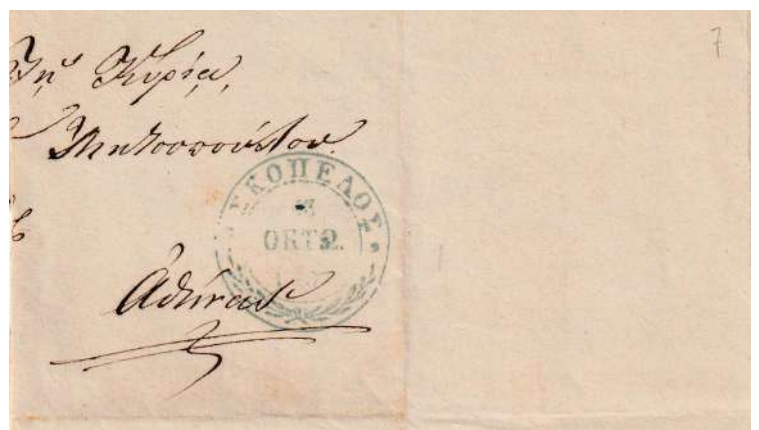 7
Τῇ Κυρίᾳ,
ΣΚΟΠΕΛΟΣ
ΟΚΤΩ.
Ἀθήνας